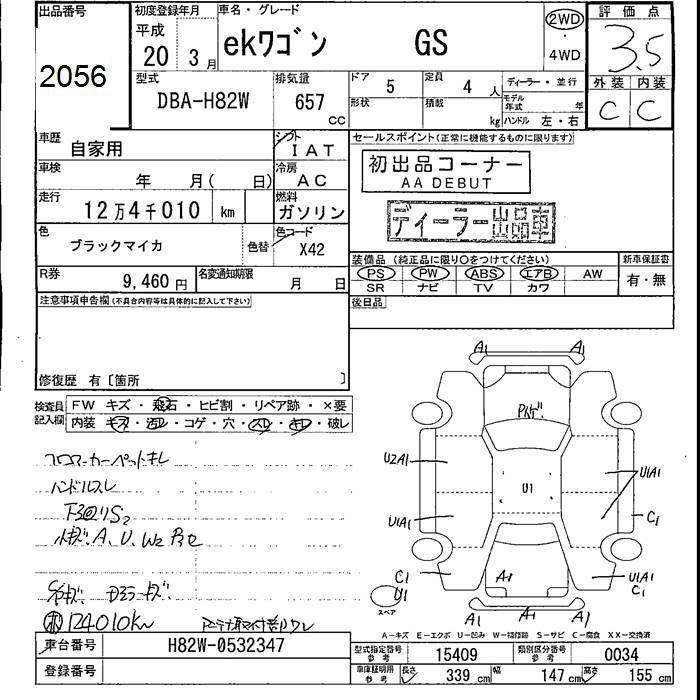 出品番号 初度登録年月 車名・グレード 評価点
平成 20 3月 ekワゴン GS 2WD ・ 4WD 3.5
2056
型式 排気量 ドア 5 定員 4 人 ディーラー・並行 外装 内装
DBA-H82W 657 CC 形状 積載 kg モデル年式 年 C C
ハンドル 左・右
車歴 自家用 シフト IAT セールスポイント(正常に機能するものに限ります)
車検 年 月( 日) 冷房 AC 初出品コーナー
AA DEBUT
走行 12万4千010 km 燃料 ガソリン ディーラー出品車
色 ブラックマイカ 色替 色コード X42
装備品 (純正品に限り○をつけてください) 新車保証書
R券 9,460円 名変通知期限 月 日 PS PW ABS エアB AW 有・無
SR ナビ TV カワ
注意事項申告欄(不具合内容等は具体的に記入して下さい) 後日品
修復歴 有〔箇所 〕
検査員記入欄 FW キズ・飛石・ヒビ割・リペア跡・×要
内装 キズ・汚レ・コゲ・穴・スレ・キレ・破レ
フロアカーペットキレ
ハンドルスレ
下回りS2
A、U、W2
124010km
A1 A1
U2A1 U1 U1A1
U1A1 C1
C1 A1 U1A1
U1 C1
スペア
A1 A1 A1
A-キズ E-エクボ U-凹み W-補修跡 S-サビ C-腐食 XX-交換済
車台番号 H82W-0532347 型式指定番号 参考 15409 類別区分番号 参考 0034
登録番号 車庫証明用 参考 長さ 339 cm 幅 147 cm 高さ 155 cm